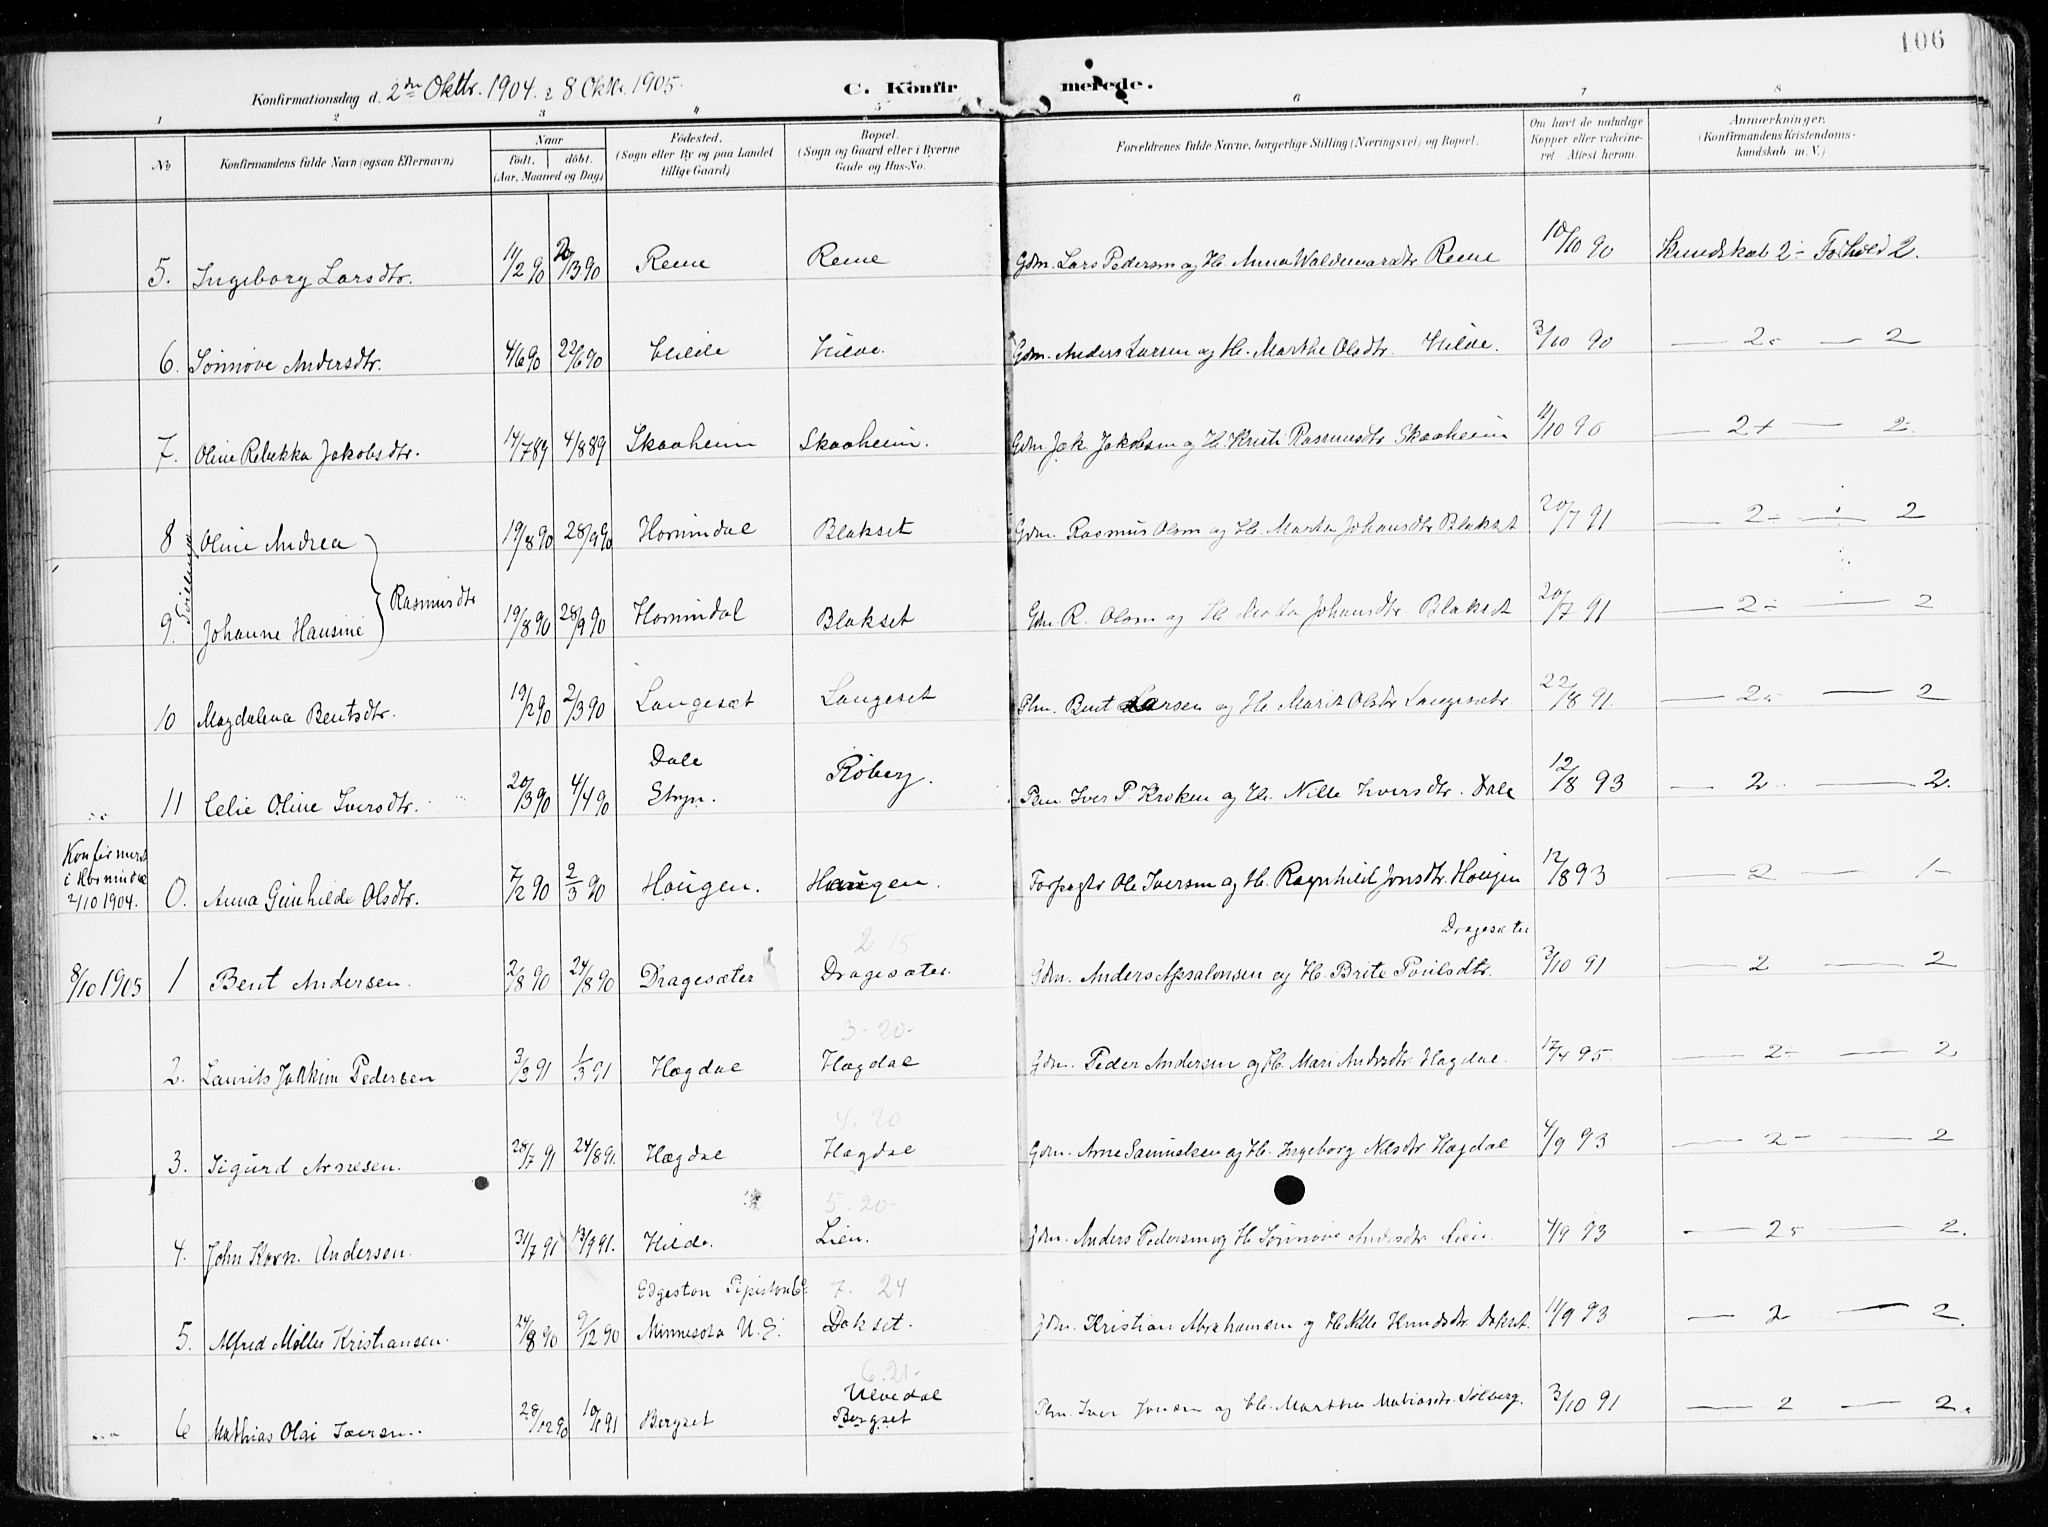 106
Konfirmationsdag d. 2den Oktbr. 1904. & 8 Oktbr. 1905. C. Konfirmerede.
1 2 3 4 5 6 7 8
No Konfirmandens fulde Navn (ogsaa Efternavn) Naar født. døbt. (Aar, Maaned og Dag) Fødested. (Sogn eller By og paa Landet tillige Gaard) Bopæl. (Sogn og Gaard eller i Byerne Gade og Hus-No. Forældrenes fulde Navne, borgerlige Stilling (Næringsvei) og Bopæl. Om havt de naturlige Kopper eller vakcineret Attest herom. Anmærkninger. (Konfirmandens Kristendomskundskab m. V.)
5. Ingeborg Larsdtr. 11/2 90 20/3 90 Reme Reme Gdm. Lars Pedersen og H. Anna Waldemarsdtr Reme 10/10 90 Kundskab 2- Forhold 2.
6. Sønnøve Andersdtr. 4/6 90 22/6 90 Hilde Gdm. Anders Larsen og H. Marthe Olsdtr. 3/10 90 — 2- — 2
7. Oline Rebekka Jakobsdtr. 14/7 89 4/8 89 Skaaheim Skaaheim. Gdm Jak. Jakobsen og H. Kristi Rasmusdtr Skaaheim 11/10 90 — 2+ — 2-
Tvillinger
8 Oline Andrea 19/8 90 28/9 90 Hornindal Blakset Gdm. Rasmus Olsen og H. Marta Johansdtr Blakset 20/7 91 — 2- — 2
Rasmusdtr
9. Johanne Hansine 19/8 90 28/9 90 Hornindal Blakset Gdm R. Olsen og H. Marta Johansdtr Blakset 20/7 91 — 2- — 2
10 Magdalena Bentsdtr. 19/2 90 2/3 90 Langesæt Langeset Plm. Bent Larsen og H. Marit Olsdtr Langesætr 22/8 91. — 2- — 2
11 Celie Oline Iversdtr. 20/3 90 4/4 90 Dale Stryn. Røberg. Plm Iver P Kroken og H. Nille Iversdtr. Dale 12/8 93 — 2 — 2.
Konfirmert i Hornindal 2/10 1904.
0. Anna Gunhilde Olsdtr. 7/2 90 2/3 90 Haugen. Haugen. Forpagtr Ole Iversen og H. Ragnhild Jonsdtr. Haugen 12/8 93 — 2 — 1-
2 15
Dragesæter
8/10 1905 1 Bent Andersen. 2/8 90 24/8 90 Dragesæter Dragesæter. Gdm. Anders Apsalonsen og H. Brite Poulsdtr. 3/10 91 — 2 — 2
3-20-
2. Laurits Joakim Pedersen 3/2 91 1/3 91 Hægdal Hægdal Gdm. Peder Andersen og H. Mari Andersdtr. Hægdal. 12/4 95. — 2- — 2
4. 20
3. Sigurd Arnesen. 28/7 91 24/8 91. Hægdal Hægdal Gdm. Arne Samuelsen og H. Ingeborg Nilsdtr Hægdal 4/9 93 — 2- — 2
5. 20-
4. John Korn. Andersen. 31/7 91 13/9 91. Hilde. Lien. Gdm. Anders Pedersen og H. Sønnøve Andersdtr Lien 4/9 93 — 2- — 2.
7. 24
5. Alfred Møller Kristiansen. 24/8 90 9/12 90 Edgeston Pipiston Co Minnesota U.S. Dokset. Gdm. Kristian Abrahamsen og H. Nille Knudsdtr. Dokset. 11/9 93 — 2 — 2.
6. 21-
6 Mathias Olai Iversen. 28/12 90 10/1 91 Bergset Ulvedal Bergset Plm. Iver og H. Marthe Matiasdtr. Solberg. 3/10 91 — 2 — 2.